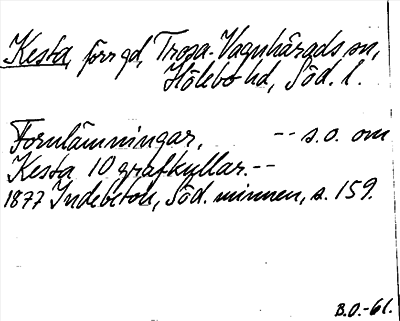 Kesta, förr gd, Trosa-Vagnhärads sn,
Hölebo hd, Söd. l.
Fornlämningar, -- s.o. om
Kesta 10 grafkullar. --
1877 Indebetou, Söd. minnen, s. 159.
B.O.-61.